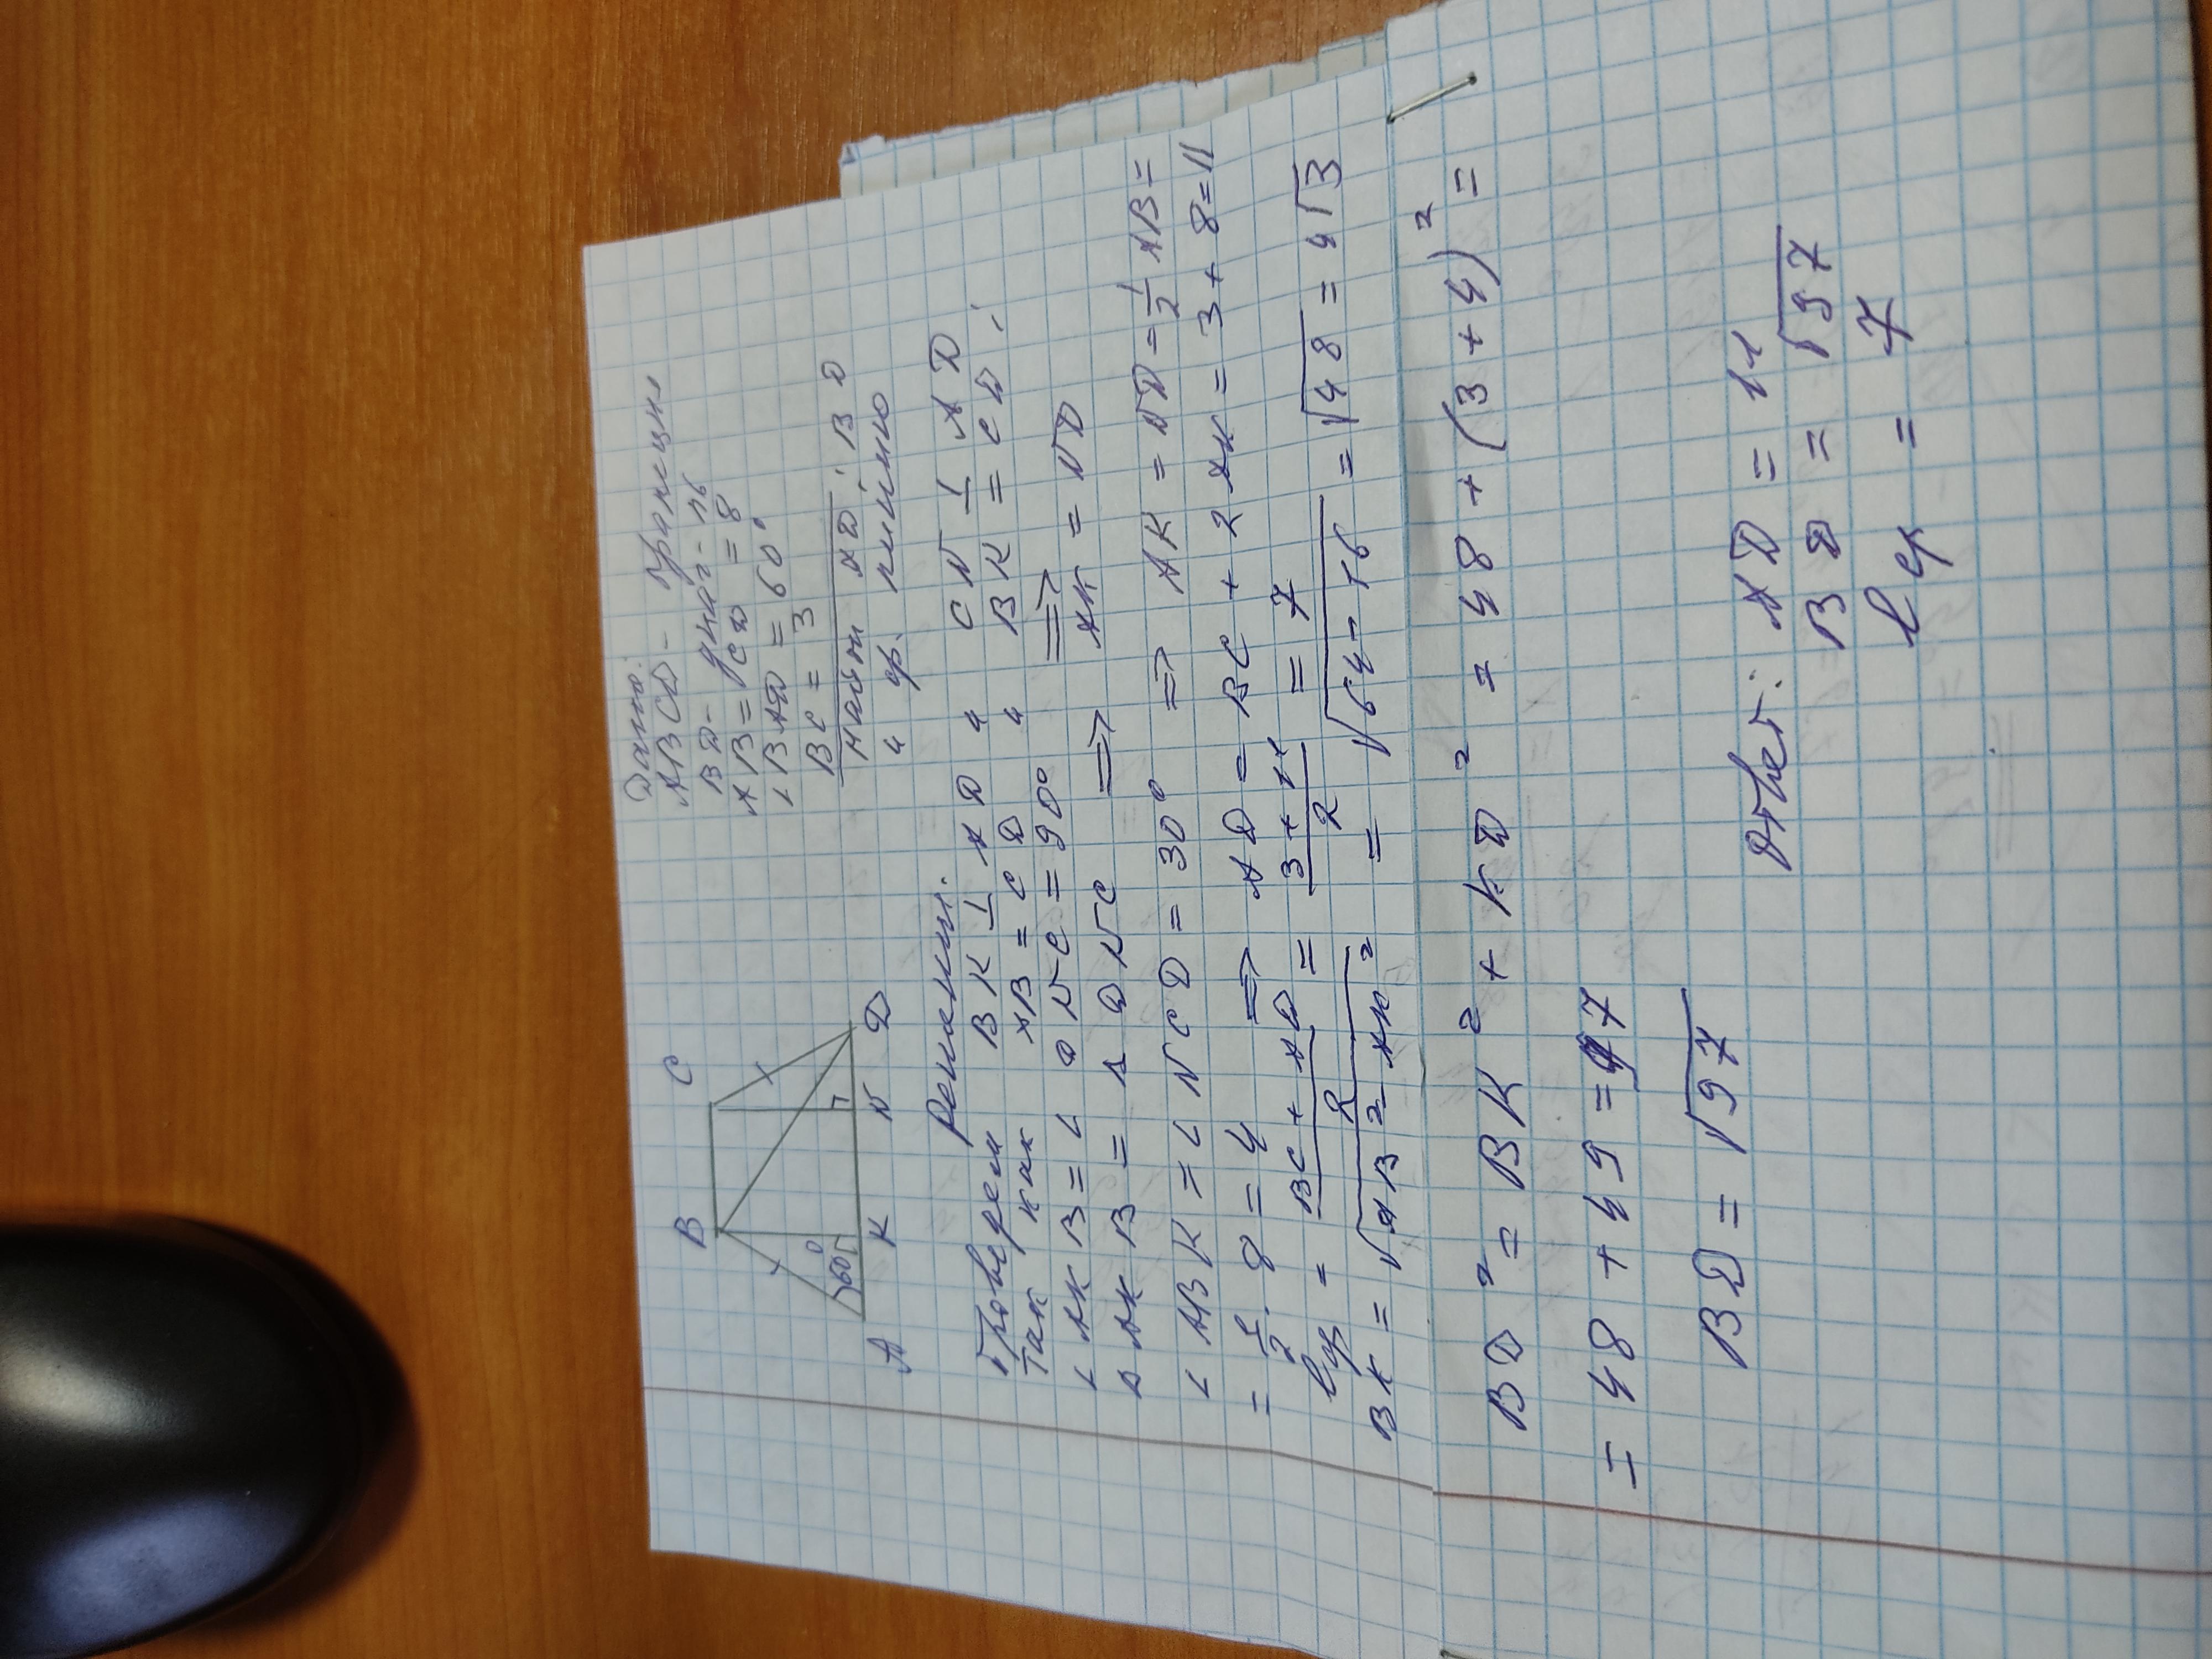 Дано:
ABCD - трапеция
BD - диаг-ль
AB = CD = 8
∠BAD = 60°
BC = 3
Найти AD; BD
и ср. линию
B C
60°
A K N D
Решение.
Проведем BK ⊥ AD и CN ⊥ AD
так как AB = CD и BK = CN;
∠AKB = ∠DNC = 90° ⟹
ΔAKB = ΔDNC ⟹ AK = ND
∠ABK = ∠NCD = 30° ⟹ AK = ND = 1/2 AB =
= 1/2 · 8 = 4 ⟹ AD = BC + 2AK = 3 + 8 = 11
lср = (BC + AD)/2 = (3 + 11)/2 = 7
BK = √(AB² - AK²) = √(64 - 16) = √48 = 4√3
BD² = BK² + KD² = 48 + (3 + 4)² =
= 48 + 49 = 97
BD = √97
Ответ: AD = 11
BD = √97
lср = 7